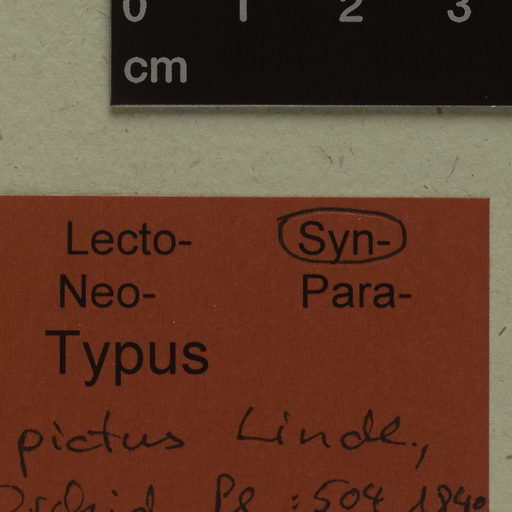 0 1 2 3
cm
Lecto- Syn-
Neo- Para-
Typus
pictus Lindl.,
Orchid. Pl. : 504 1840